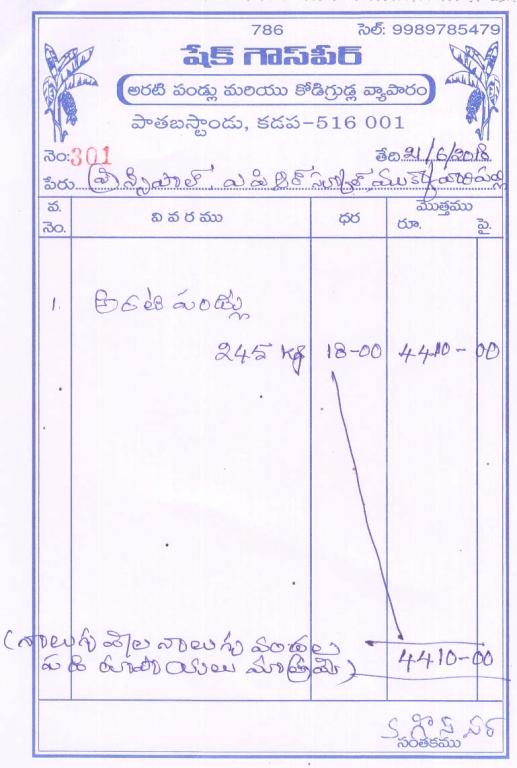 786 సెల్: 9989785479
షేక్ గౌస్‌పీర్
అరటి పండ్లు మరియు కోడిగ్రుడ్ల వ్యాపారం
పాతబస్టాండు, కడప-516 001
నెం: 301 తేది 21/6/2018
పేరు ప్రిన్సిపాల్,
వ. నెం. వివరము ధర మొత్తము రూ. పై.
1. అరటి పండ్లు
245 kg 18-00 4410-00
(నాలుగు వేల నాలుగు వందల
పది రూపాయలు మాత్రమే) 4410-00
సంతకము